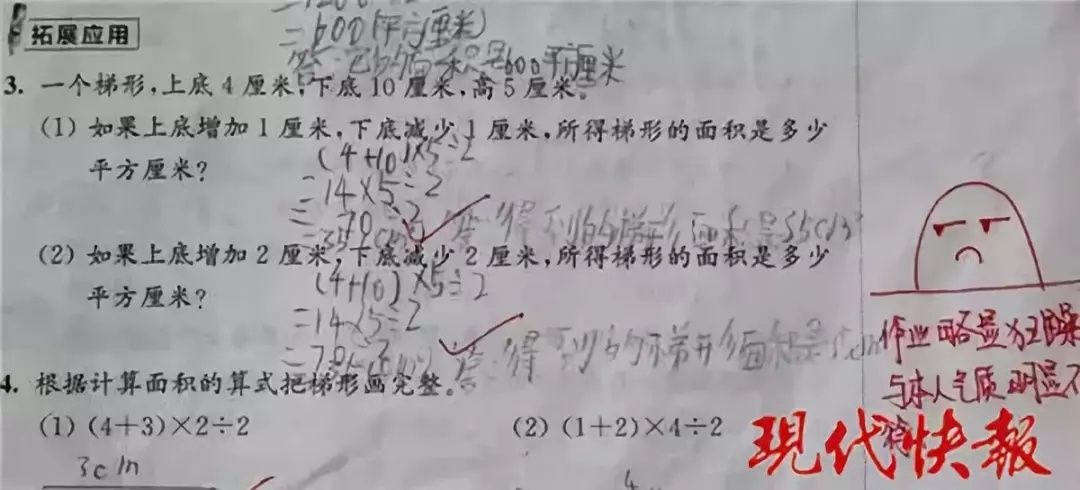 =600(平方厘米)
拓展应用
答:它的面积是600平方厘米
3. 一个梯形,上底 4 厘米,下底 10 厘米,高 5 厘米。
(1) 如果上底增加 1 厘米,下底减少 1 厘米,所得梯形的面积是多少
平方厘米?
(4+10)×5÷2
=14×5÷2
=70÷2
答:得到的梯形面积是35cm²
(2) 如果上底增加 2 厘米,下底减少 2 厘米,所得梯形的面积是多少
平方厘米?
(4+10)×5÷2
=14×5÷2
=70÷2
答:得到的梯形面积是
作业略显狂躁
与本人气质明显不
符
4. 根据计算面积的算式把梯形画完整。
(1) (4+3)×2÷2
(2) (1+2)×4÷2
3cm
4
现代快報